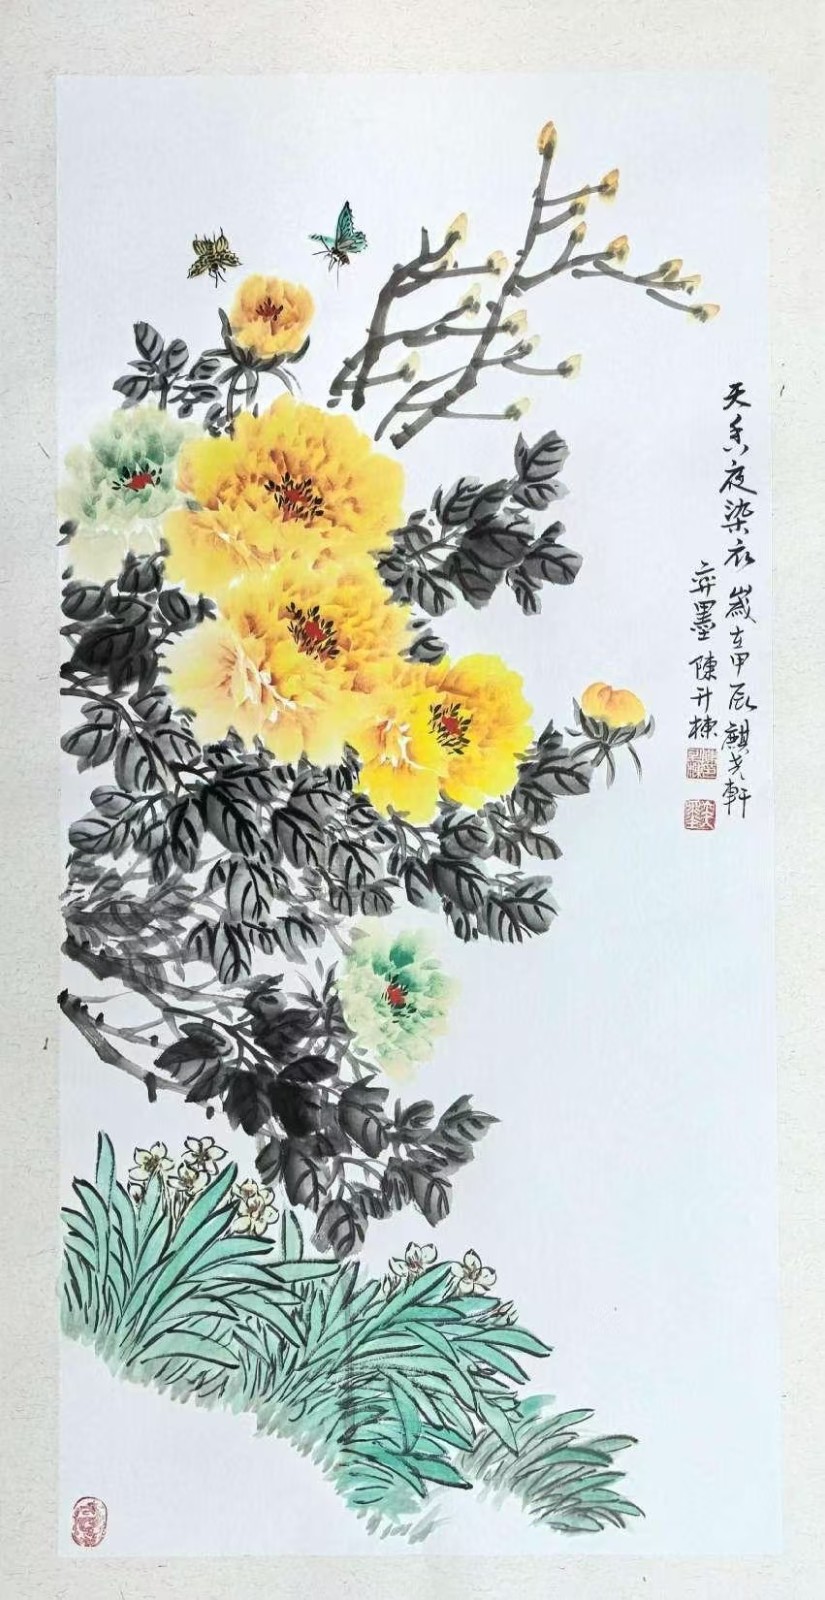 天香夜染衣 歲在甲辰 麒光軒
弈墨 陳升棟